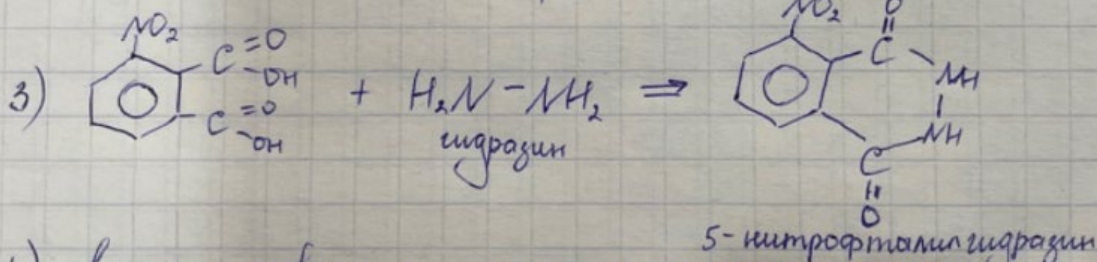 3) NO₂ C=O OH C=O OH + H₂N-NH₂ ⇒ NO₂ C O NH NH C O
гидразин
5-нитрофталилгидразин